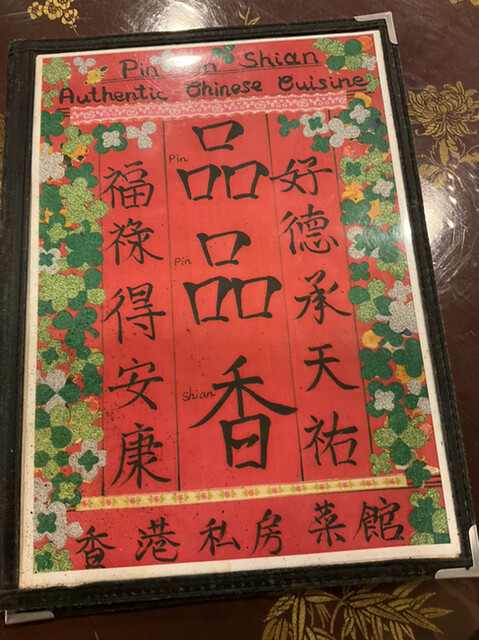 Pin Pin Shian
Authentic Chinese Cuisine
好德承天祐
Pin 品
Pin 品
Shian 香
福祿得安康
香港私房菜館